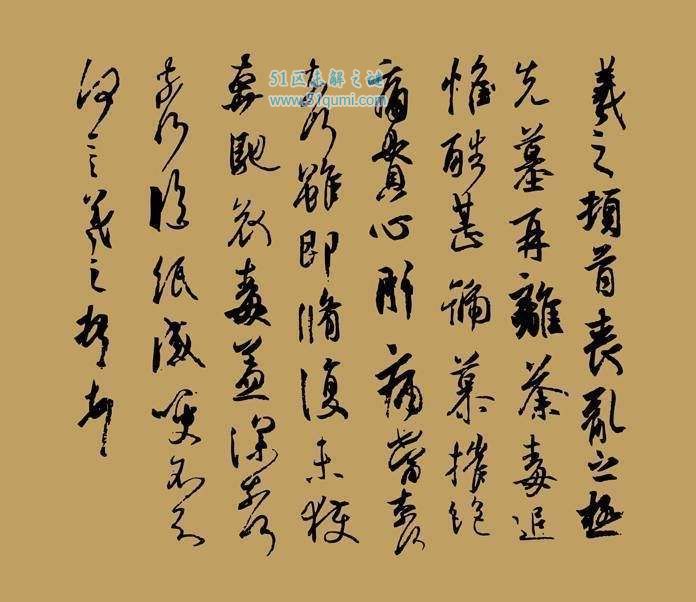 羲之頓首喪亂之極
先墓再離荼毒追
惟酷甚號慕摧絕
痛貫心肝痛當奈何
奈何雖即脩復未獲
奔馳哀毒益深奈何
奈何臨紙感哽不知
何言羲之頓首頓首
51区未解之谜
www.51qumi.com